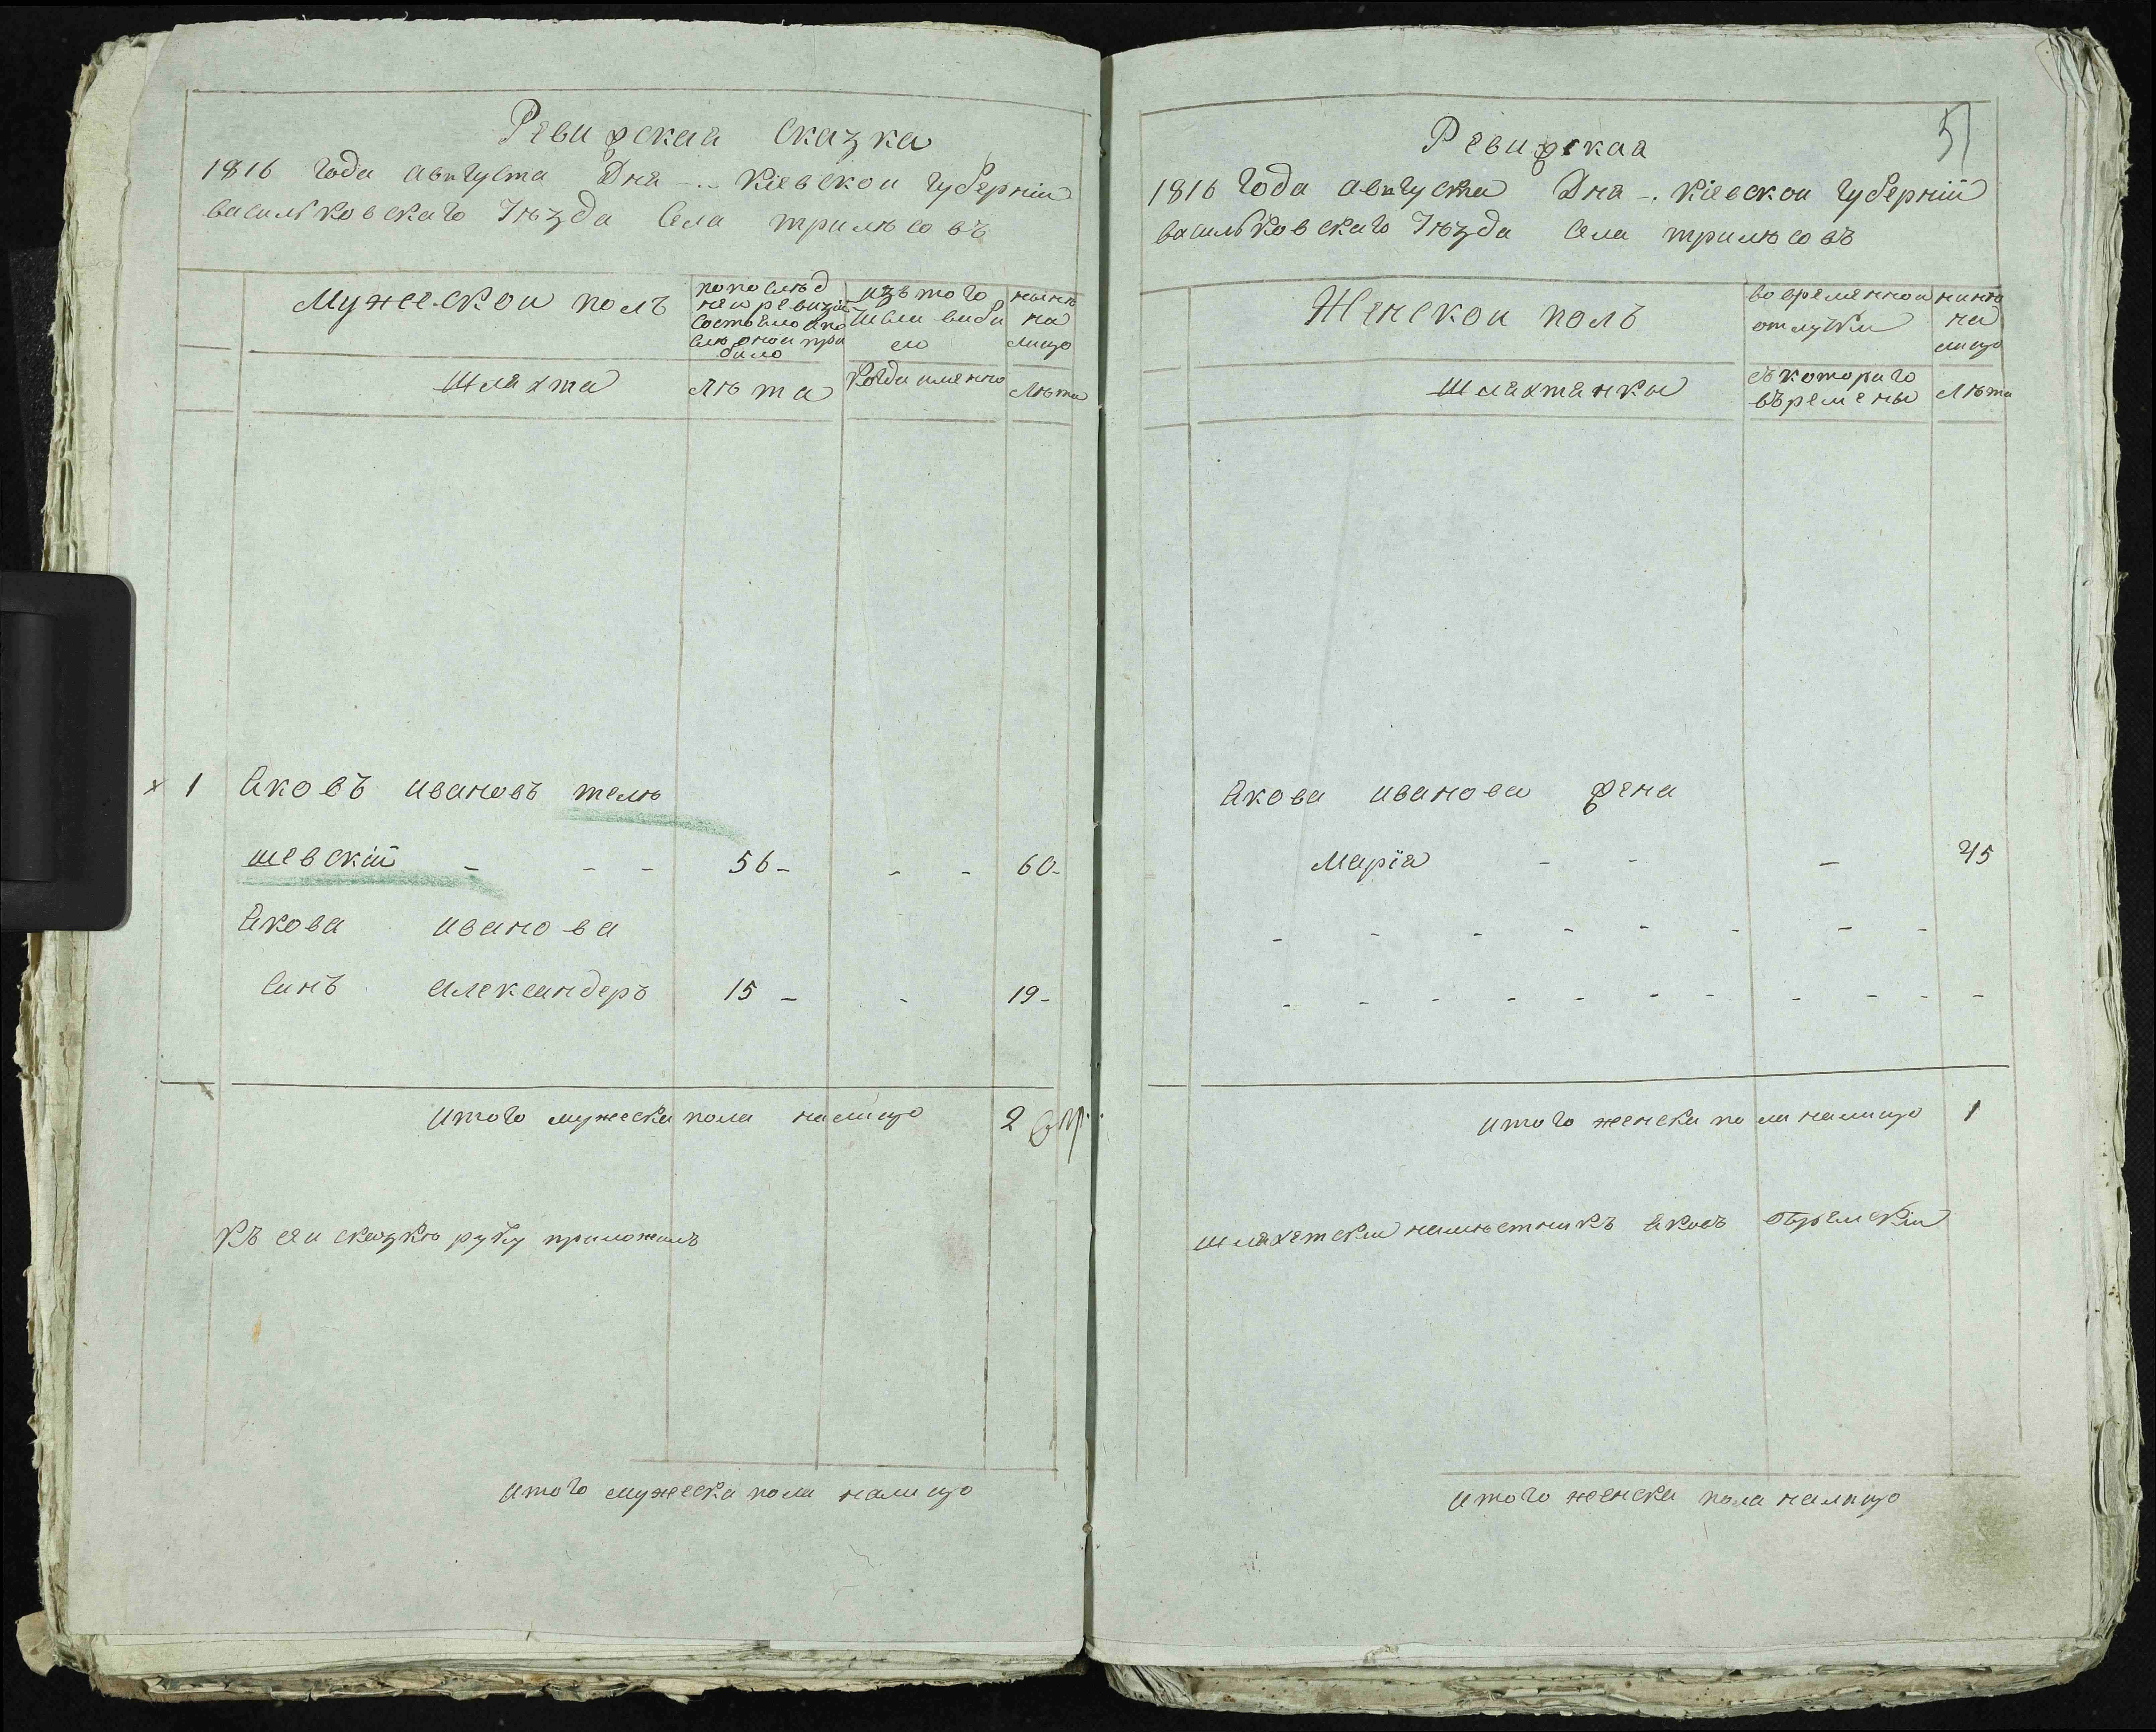 Ревизская Сказка
1816 года августа Дня -.- Кіевскои губерніи
васильковскаго Уѣзда Села трилѣсовъ
Мужескои полъ
по послѣд
неи ревизіи
состояло и по
слѣ онои при
било
изъ того
числа виби
ло
нынѣ
на
лицо
Шляхта
Лѣта
Когда имянно
Лѣта
× 1 Яковъ ивановъ телѣ
шевскій - - - 56 - - - 60 -
Якова иванова
Синъ александеръ 15 - - 19 -
итого мужеска пола налицо 2
Къ сеи сказкѣ руку приложилъ
итого мужеска пола налицо
51
Ревизская
1816 года августа Дня -. Кіевскои губерніи
васильковскаго Уѣзда Села трилѣсовъ
Женскои полъ
во временнои
отлучки
нинѣ
на
лицо
шляхтянки
съ котораго
времены
Лѣта
Якова иванова жена
Марія - - - 45
- - - - - - - -
- - - - - - - - - - -
итого женска пола налицо 1
шляхетскии намѣстникъ Яковъ
итого женска пола налицо